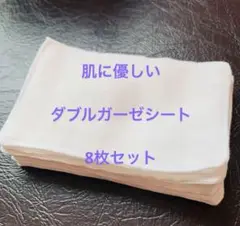 肌に優しい
ダブルガーゼシート
8枚セット